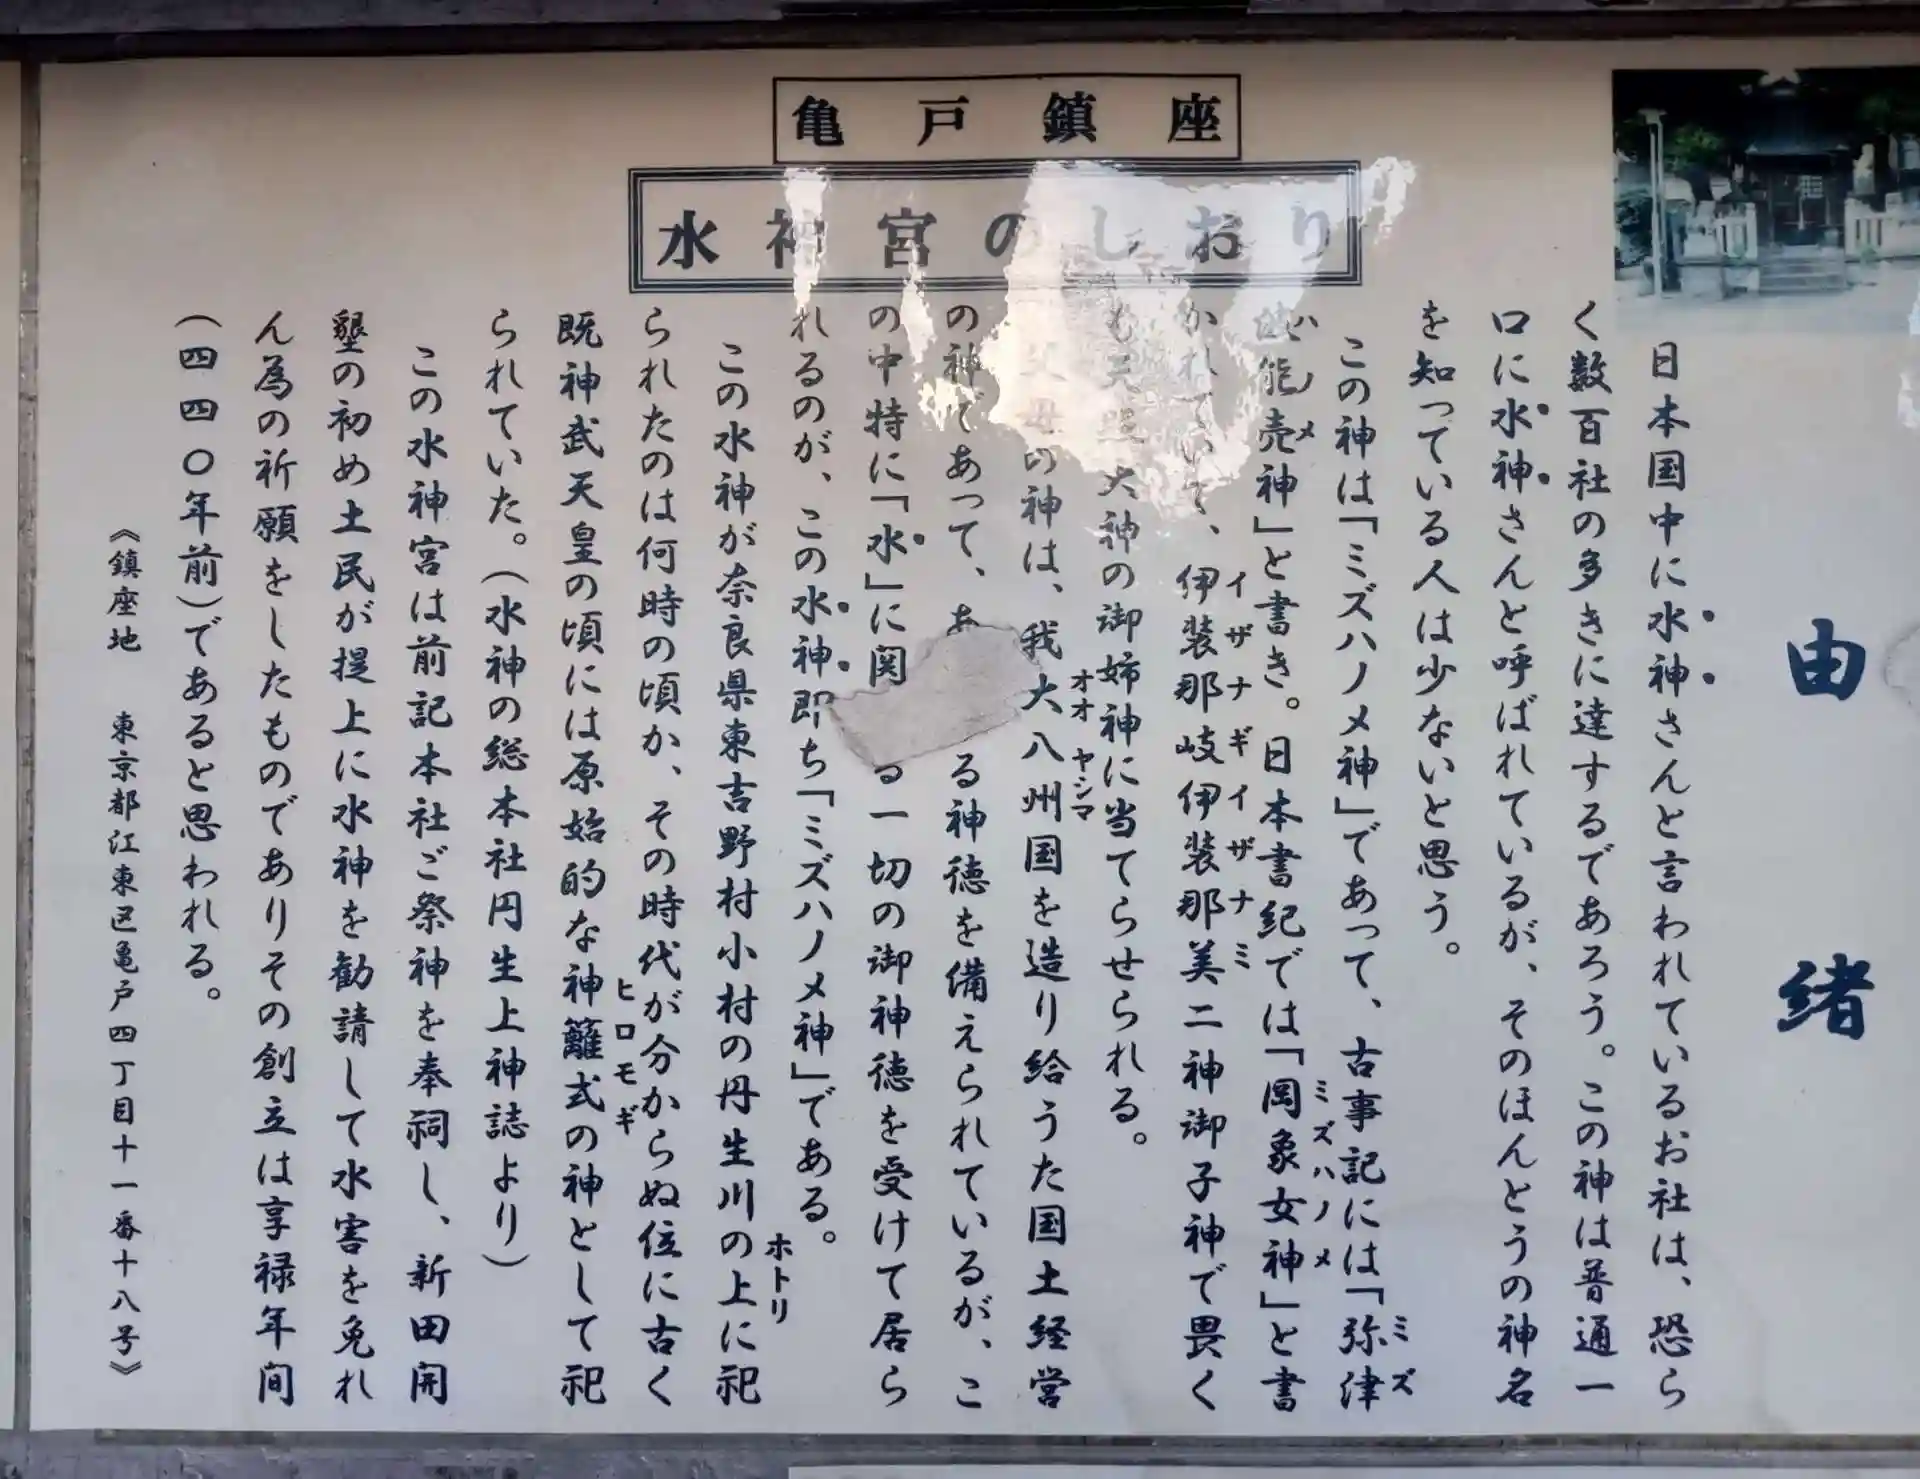 亀戸鎮座
水神宮のしおり
由緒
日本国中に水神さんと言われているお社は、恐ら
く数百社の多きに達するであろう。この神は普通一
口に水神さんと呼ばれているが、そのほんとうの神名
を知っている人は少ないと思う。
この神は「ミズハノメ神」であって、古事記には「弥津
ミズ
能売神」と書き。日本書紀では「罔象女神」と書
ハノメ
ミズハノメ
かれていて、伊装那岐伊装那美二神御子神で畏く
イザナギイザナミ
も天照大神の御姉神に当てらせられる。
父母の神は、我大八州国を造り給うた国土経営
オオヤシマ
の神であって、あ る神徳を備えられているが、こ
の中特に「水」に関 る一切の御神徳を受けて居ら
れるのが、この水神即ち「ミズハノメ神」である。
この水神が奈良県東吉野村小村の丹生川の上に祀
ホトリ
られたのは何時の頃か、その時代が分からぬ位に古く
既神武天皇の頃には原始的な神籬式の神として祀
ヒロモギ
られていた。(水神の総本社円生上神誌より)
この水神宮は前記本社ご祭神を奉祠し、新田開
墾の初め土民が提上に水神を勧請して水害を免れ
ん為の祈願をしたものでありその創立は享禄年間
(四四〇年前)であると思われる。
《鎮座地 東京都江東区亀戸四丁目十一番十八号》